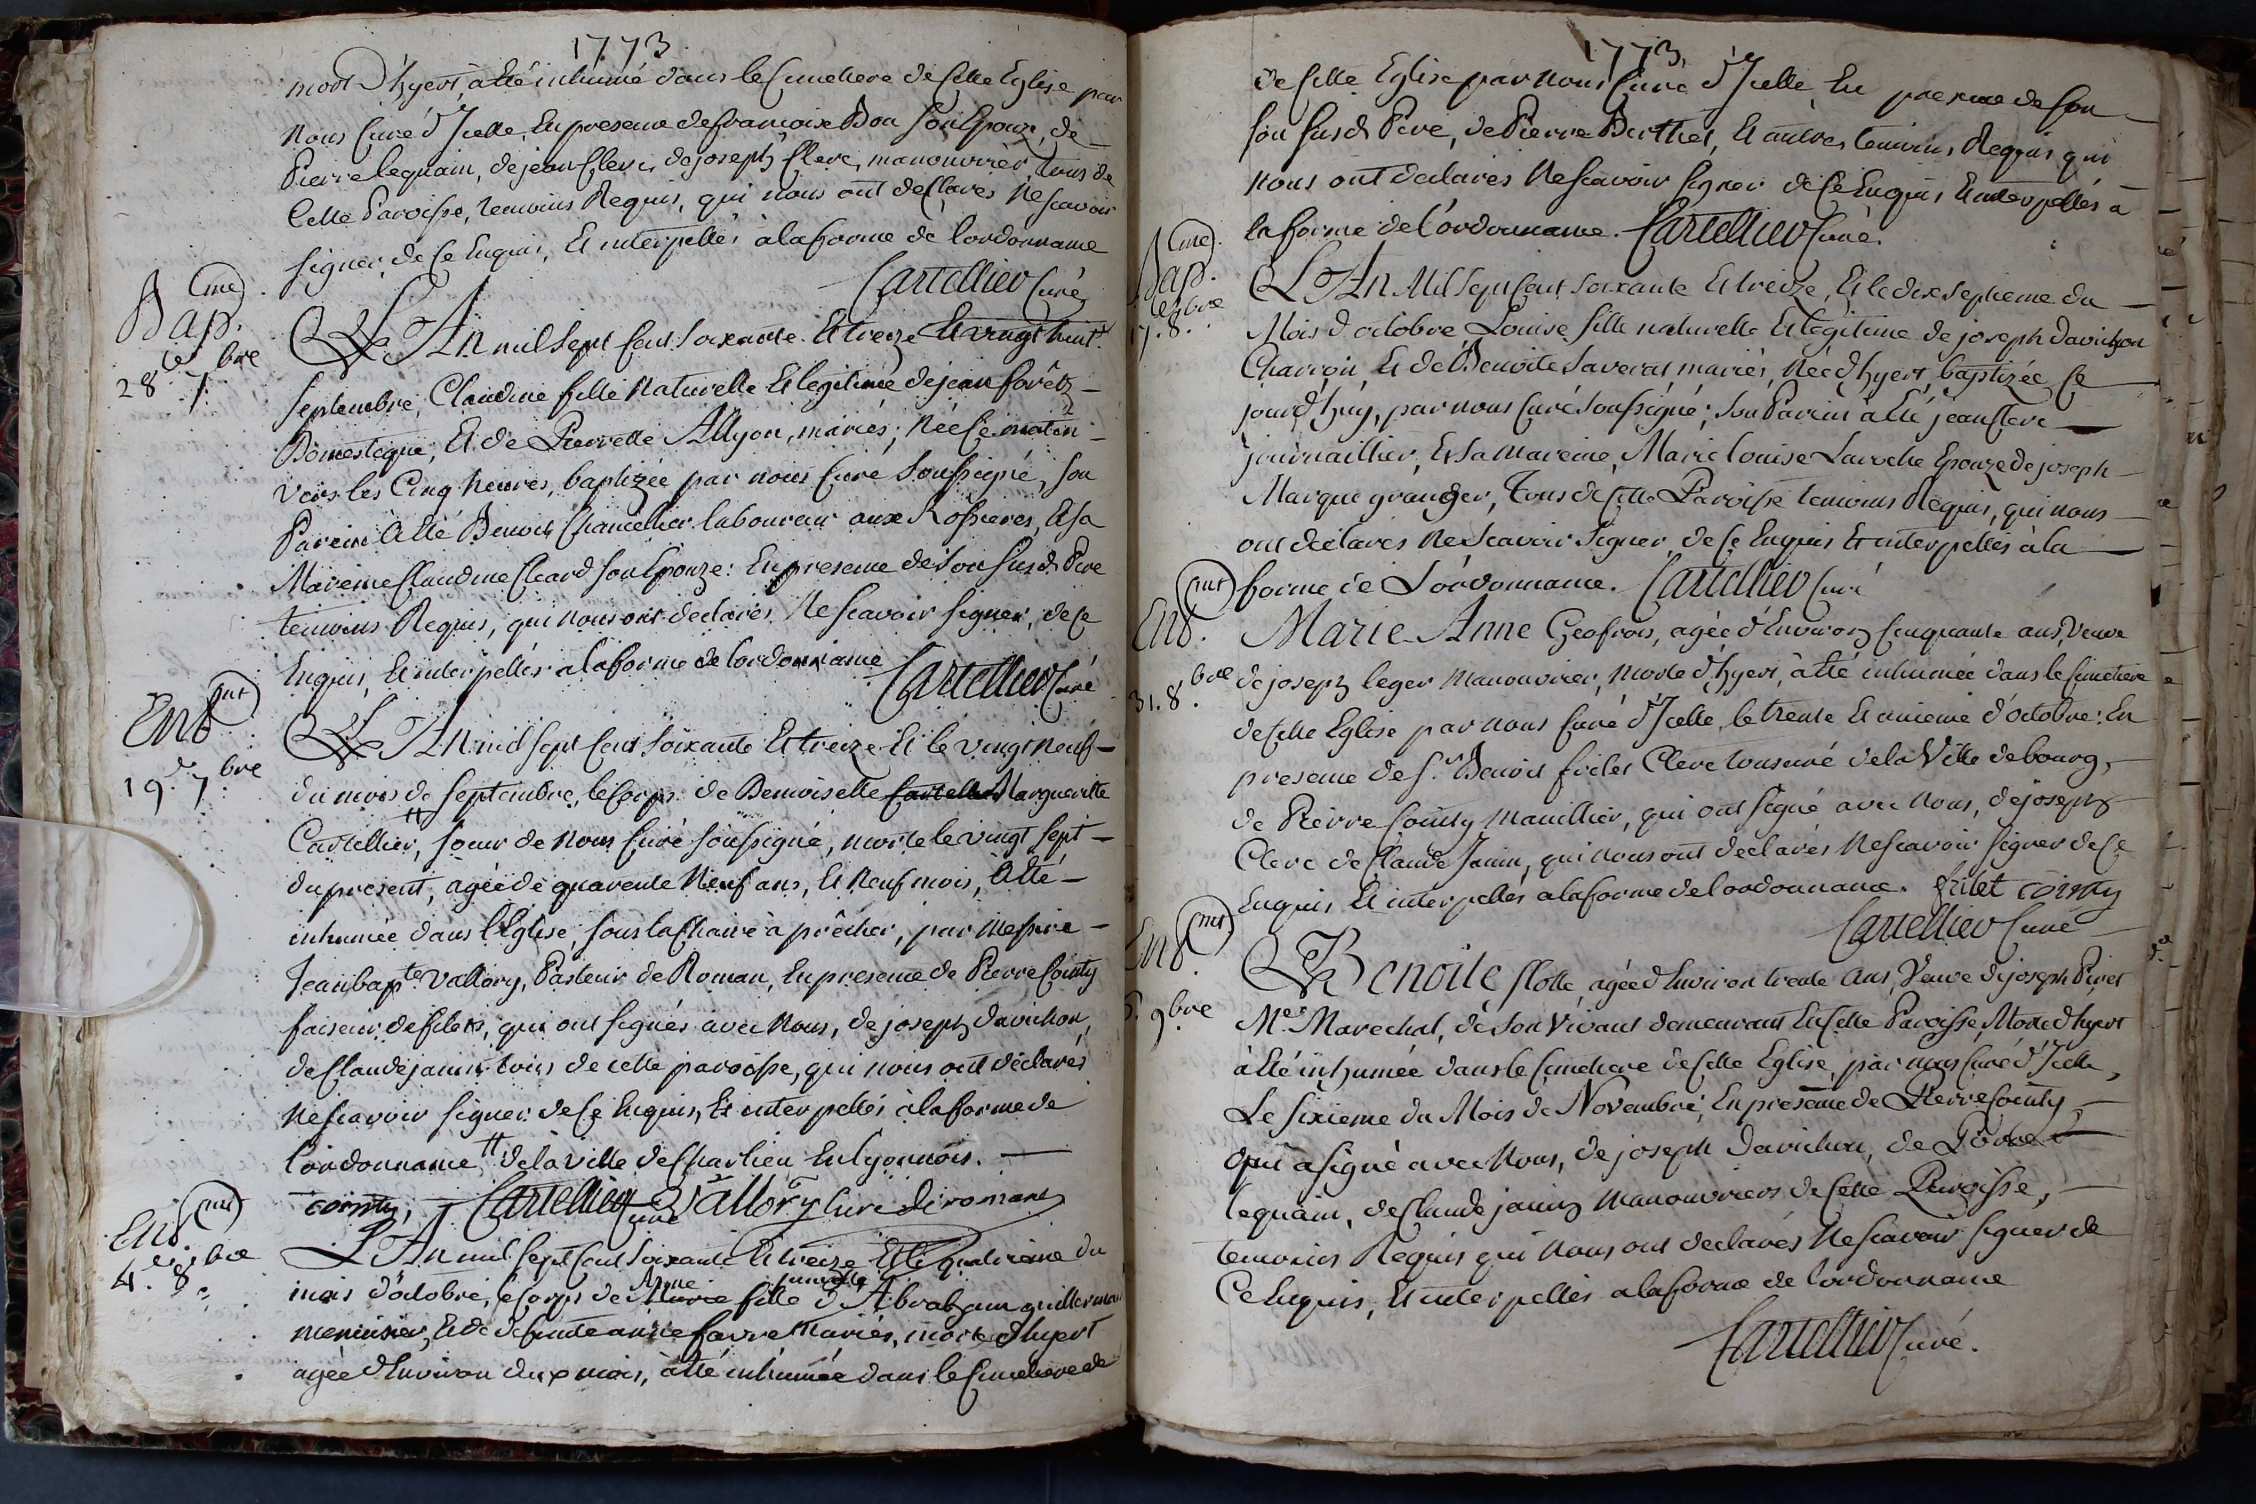 1773
mort d'hyert, a Eté inhumé dans le Cimetiere de Cette Eglise par
Nous Curé d'Jcelle, En presence de francoise Bon son Epouze, de
Pierre lequain, de jean Clerc, de joseph Clerc, manouvrier, tous de
Cette Paroisse, temoins Requis, qui nous ont declarés Ne scavoir
signer, de Ce Enquis, Et interpellés à la forme de lordonnance
Cartellier Curé
Bap. Cme
28e 7bre
L'An mil sept Cent soixante Et treize Et vingt huit
septembre, Claudine fille Naturelle Et legitime de jean forêtz
Domestique, Et de Pierrette Allyon, mariés, Née Ce matin
vers les Cinq heures, baptizée par nous Curé soussigné, son
Parein à Eté Benoit Chancellier laboureur aux Rossieres, Et sa
Mareine Claudine Cleard son Epouze: En presence de son susd. Pere
temoins Requis, qui nous ont declarés Ne scavoir signer, de Ce
Enquis, Et interpellés a la forme de lordonnance Cartellier Curé
Ent mt
19e 7bre
L'An mil sept Cent soixante Et treize Et le vingt neuf
du mois de septembre, le Corps de Demoiselle Cartellier Marguerite
Cartellier, # soeur de Nous Curé soussigné, morte le vingt sept
du present, agée de quarente Neuf ans, Et Neuf mois, à Eté
inhumée dans l'Eglise, sous la Chaire à prêcher, par Messire
Jean bapte vallory, Pasteur de Roman, En presence de Pierre Cointy
faiseur de filets, qui ont signés avec Nous, de joseph davichon,
de Claude janin tous de cette paroisse, qui nous ont déclarés
Ne scavoir signer de Ce Enquis, Et interpellés à la forme de
l'ordonnance # de la Ville de Charlieu En lyonnois.
Cointy, Cartellier Curé Vallory Curé de romans
Ent mt
4e 8bre
L'An mil sept Cent soixante Et treize Et le quatrieme du
mois d'octobre, le Corps de Marie Anne fille jumelle d'Abraham guillermin
menuisier, Et de defunte anne favre Mariés, morte d'hyert
agée d'Environ deux mois, à Eté inhumée dans le Cimetiere de
1773
de Cette Eglise par nous Curé d'Jcelle En presence de son
son susd. Pere, de Pierre Berthet, Et autres temoins Requis qui
Nous ont declarés Ne scavoir signer de Ce Enquis Et interpellés à
la forme de l'ordonnance. Cartellier Curé.
Bap. Cme
17e 8bre
L'An Mil sept Cent soixante Et treize, Et le dix septieme du
Mois d'octobre Louise fille naturelle Et legitime de joseph davichon
Charron, Et de Benoite Saverat mariés, Née d'hyert, baptizée Ce
jourd'huy, par nous Curé soussigné; son Parein à Eté jean Clerc
journaillier, Et sa Mareine, Marie louise Laroche Epouze de joseph
Marque granger, Tous de Cette Paroisse temoins Requis, qui nous
ont déclarés Ne scavoir signer de Ce Enquis Et interpellés à la
forme de L'ordonnance. Cartellier Curé
Ent mt
31. 8bre
Marie-Anne Geofrois, agée d'Environ Cinquante ans, Veuve
de joseph leger Manouvrier, Morte d'hyert, à Eté inhumée dans le Cimetiere
de Cette Eglise par nous Curé d'Jcelle, le trente Et unieme d'octobre: En
presence de Sr. Benoit frilet Clerc tonsuré de la Ville de bourg,
de Pierre Cointy manillier, qui ont signé avec Nous, de joseph
Clerc de Claude Janin, qui nous ont déclarés Ne scavoir signer de Ce
Enquis Et interpellés a la forme de lordonnance. frilet Cointy
Cartellier Curé
Ent mt
6. 9bre
Benoite flotte, agée d'Environ trente ans, Veuve de joseph Piret
Me. Marechal, de son Vivant demeurant En Cette Paroisse, Morte d'hyert
à Eté inhumée dans le Cimetiere de Cette Eglise, par nous Curé d'Jcelle,
Le sixieme du Mois de Novembre, En presence de Pierre Cointy,
qui a signé avec Nous, de joseph davichon, de Pierre
lequain, de Claude janin manouvriers de Cette Paroisse,
temoins Requis qui Nous ont declarés Ne scavoir signer de
Ce Enquis, Et interpellés a la forme de l'ordonnance
Cartellier Curé.